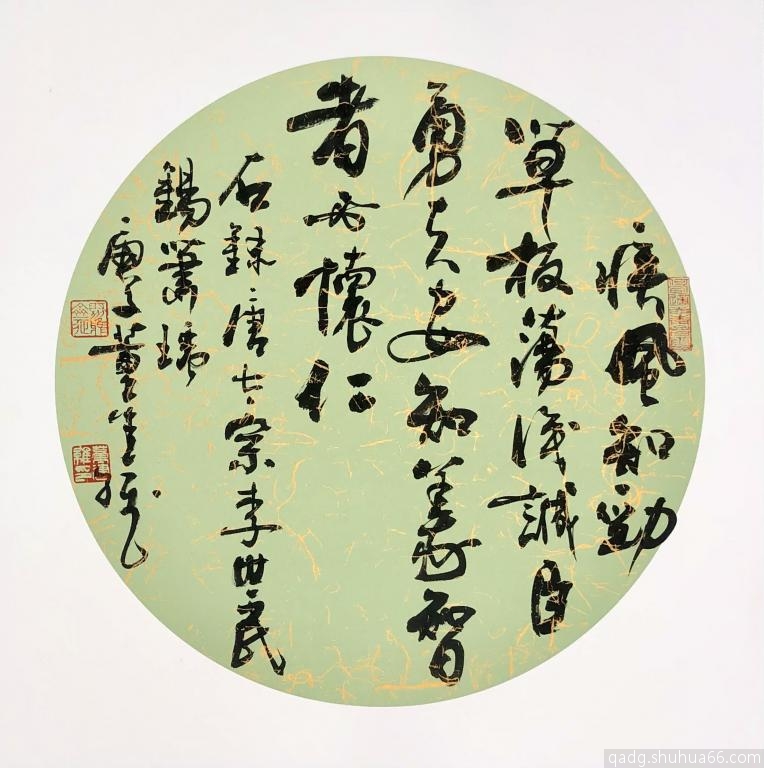 疾風知勁
草板蕩識誠臣
勇夫安知義智
者必懷仁
右錄唐太宗李世民
錫蕭瑀
庚子董
qadg.shuhua66.com